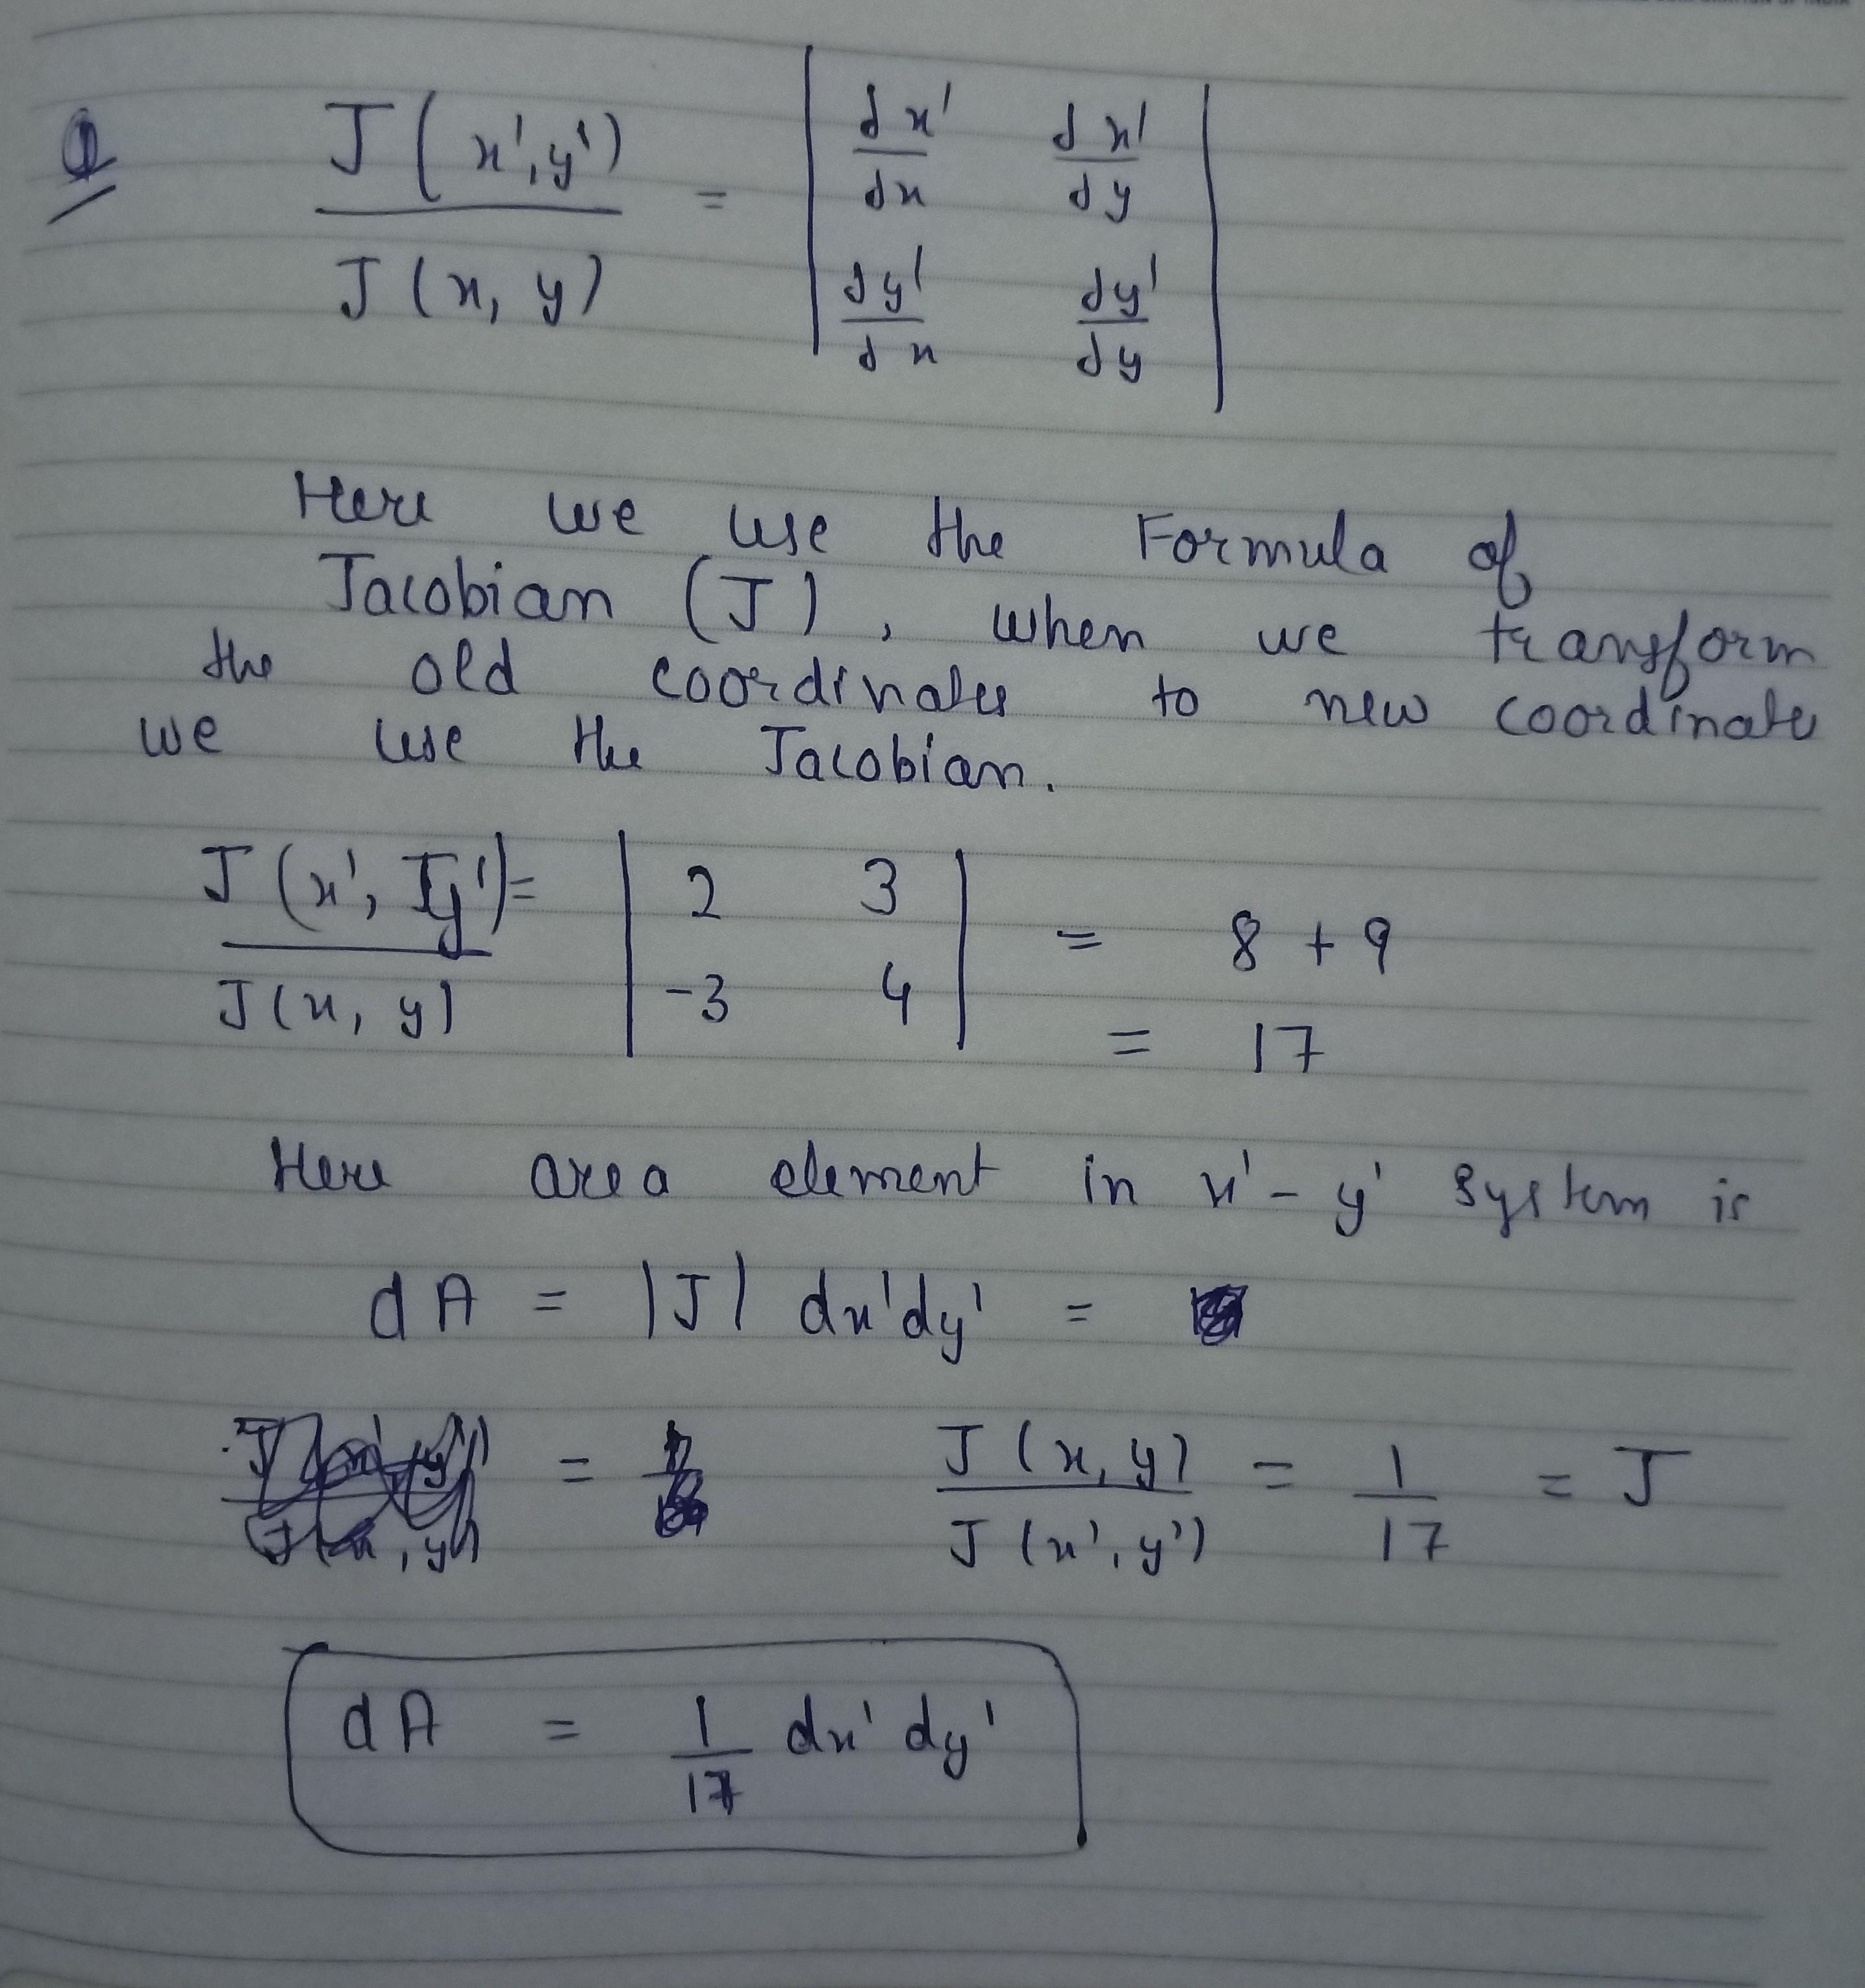 Q J(x',y') / J(x, y) = | dx'/dx dx'/dy |
| dy'/dx dy'/dy |
Here we use the Formula of
Jacobian (J), when we transform
the old coordinates to new coordinates
we use the Jacobian.
J(x', y') / J(x, y) = | 2 3 | = 8 + 9
| -3 4 |
= 17
Here area element in x' - y' system is
dA = |J| dx'dy' =
= J(x, y) / J(x', y') = 1/17 = J
dA = 1/17 dx' dy'